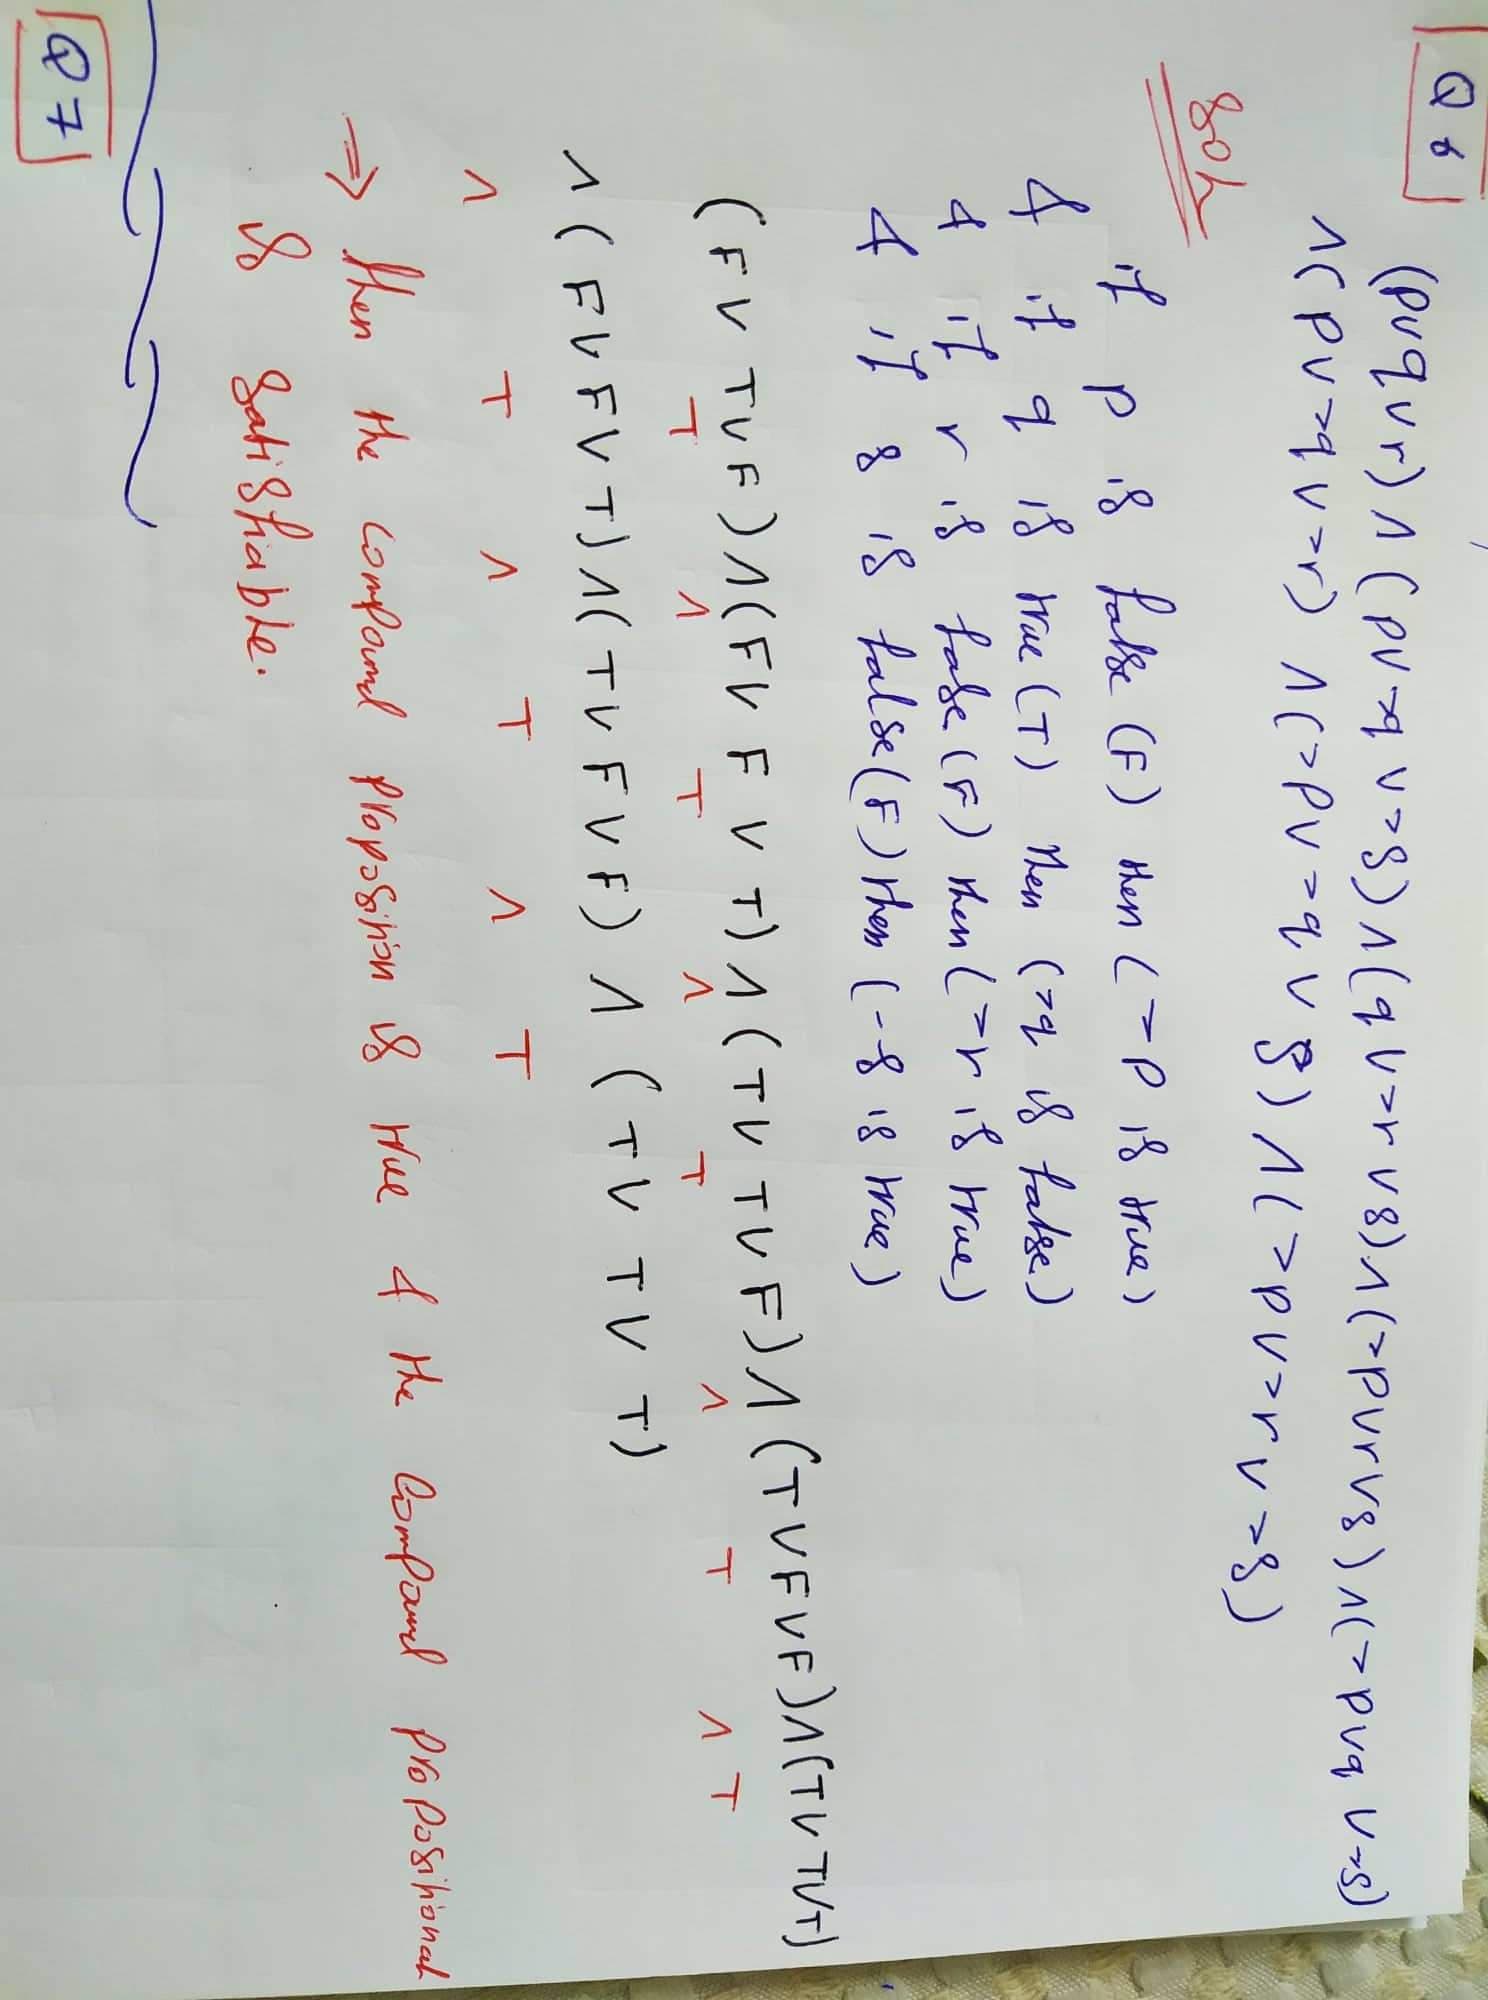 Q6
(p∨q∨r) ∧ (p∨¬q∨¬s) ∧ (q∨¬r∨s) ∧ (¬p∨r∨s) ∧ (¬p∨q∨¬s)
∧ (p∨¬q∨¬r) ∧ (¬p∨¬q∨s) ∧ (¬p∨¬r∨¬s)
Soln
if p is false (F) then (¬p is true)
& if q is true (T) then (¬q is false)
& if r is false (F) then (¬r is true)
& if s is false (F) then (¬s is true)
(F∨T∨F) ∧ (F∨F∨T) ∧ (T∨T∨F) ∧ (T∨F∨F) ∧ (T∨T∨T)
T ∧ T ∧ T ∧ T ∧ T
∧ (F∨F∨T) ∧ (T∨F∨F) ∧ (T∨T∨T)
∧ T ∧ T ∧ T
⇒ then the compound proposition is true & the compound propositional
is satisfiable.
Q7